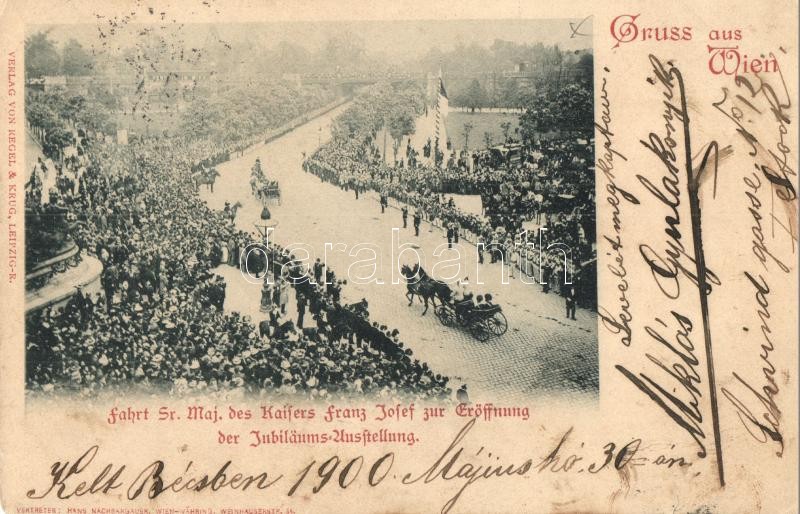 Gruss aus
Wien
VERLAG VON REGEL & KRUG, LEIPZIG-R.
darabanth
Fahrt Sr. Maj. des Kaisers Franz Josef zur Eröffnung
der Jubiläums-Ausstellung.
Kelt Bécsben 1900. Május hó. 30-án.
VERTRETER: HANS NACHBARGAUER, WIEN-WÄHRING, WEINHAUSERSTR. 34.
Levelét megkaptam.
Miklós Gyula
Schwind gasse No 12
Stock